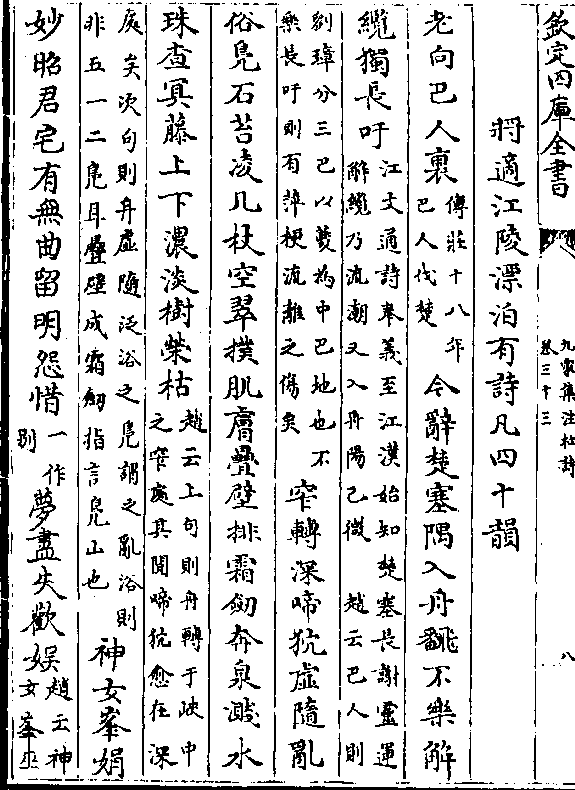 欽定四庫全書
九家集注杜詩
卷三十三
八
將適江陵漂泊有詩凡四十韻
老向巴人裏
傳莊十八年
巴人伐楚
今辭楚塞隅入舟翻不樂解
纜獨長吁
江文通詩奉義至江漢始知楚塞長謝靈運
酢纜乃流潮又入舟陽已微 趙云巴人則
劉璋分三巴以夔為中巴地也不
樂長吁則有萍梗流離之傷矣
窄轉深啼狖虛隨亂
俗鳧石苔凌几杖空翠撲肌膚疊壁排霜劒奔泉濺水
珠杳冥藤上下濃淡樹榮枯
趙云上句則舟轉于峽中
之窄處其聞啼狖愈在深
處矣次句則舟虛隨泛浴之鳧謂之亂浴則
非五一二鳧耳疊壁成霜劒指言皃山也
神女峯娟
妙昭君宅有無曲留明怨惜
一作
別
夢盡失歡娛
趙云神
女峯巫